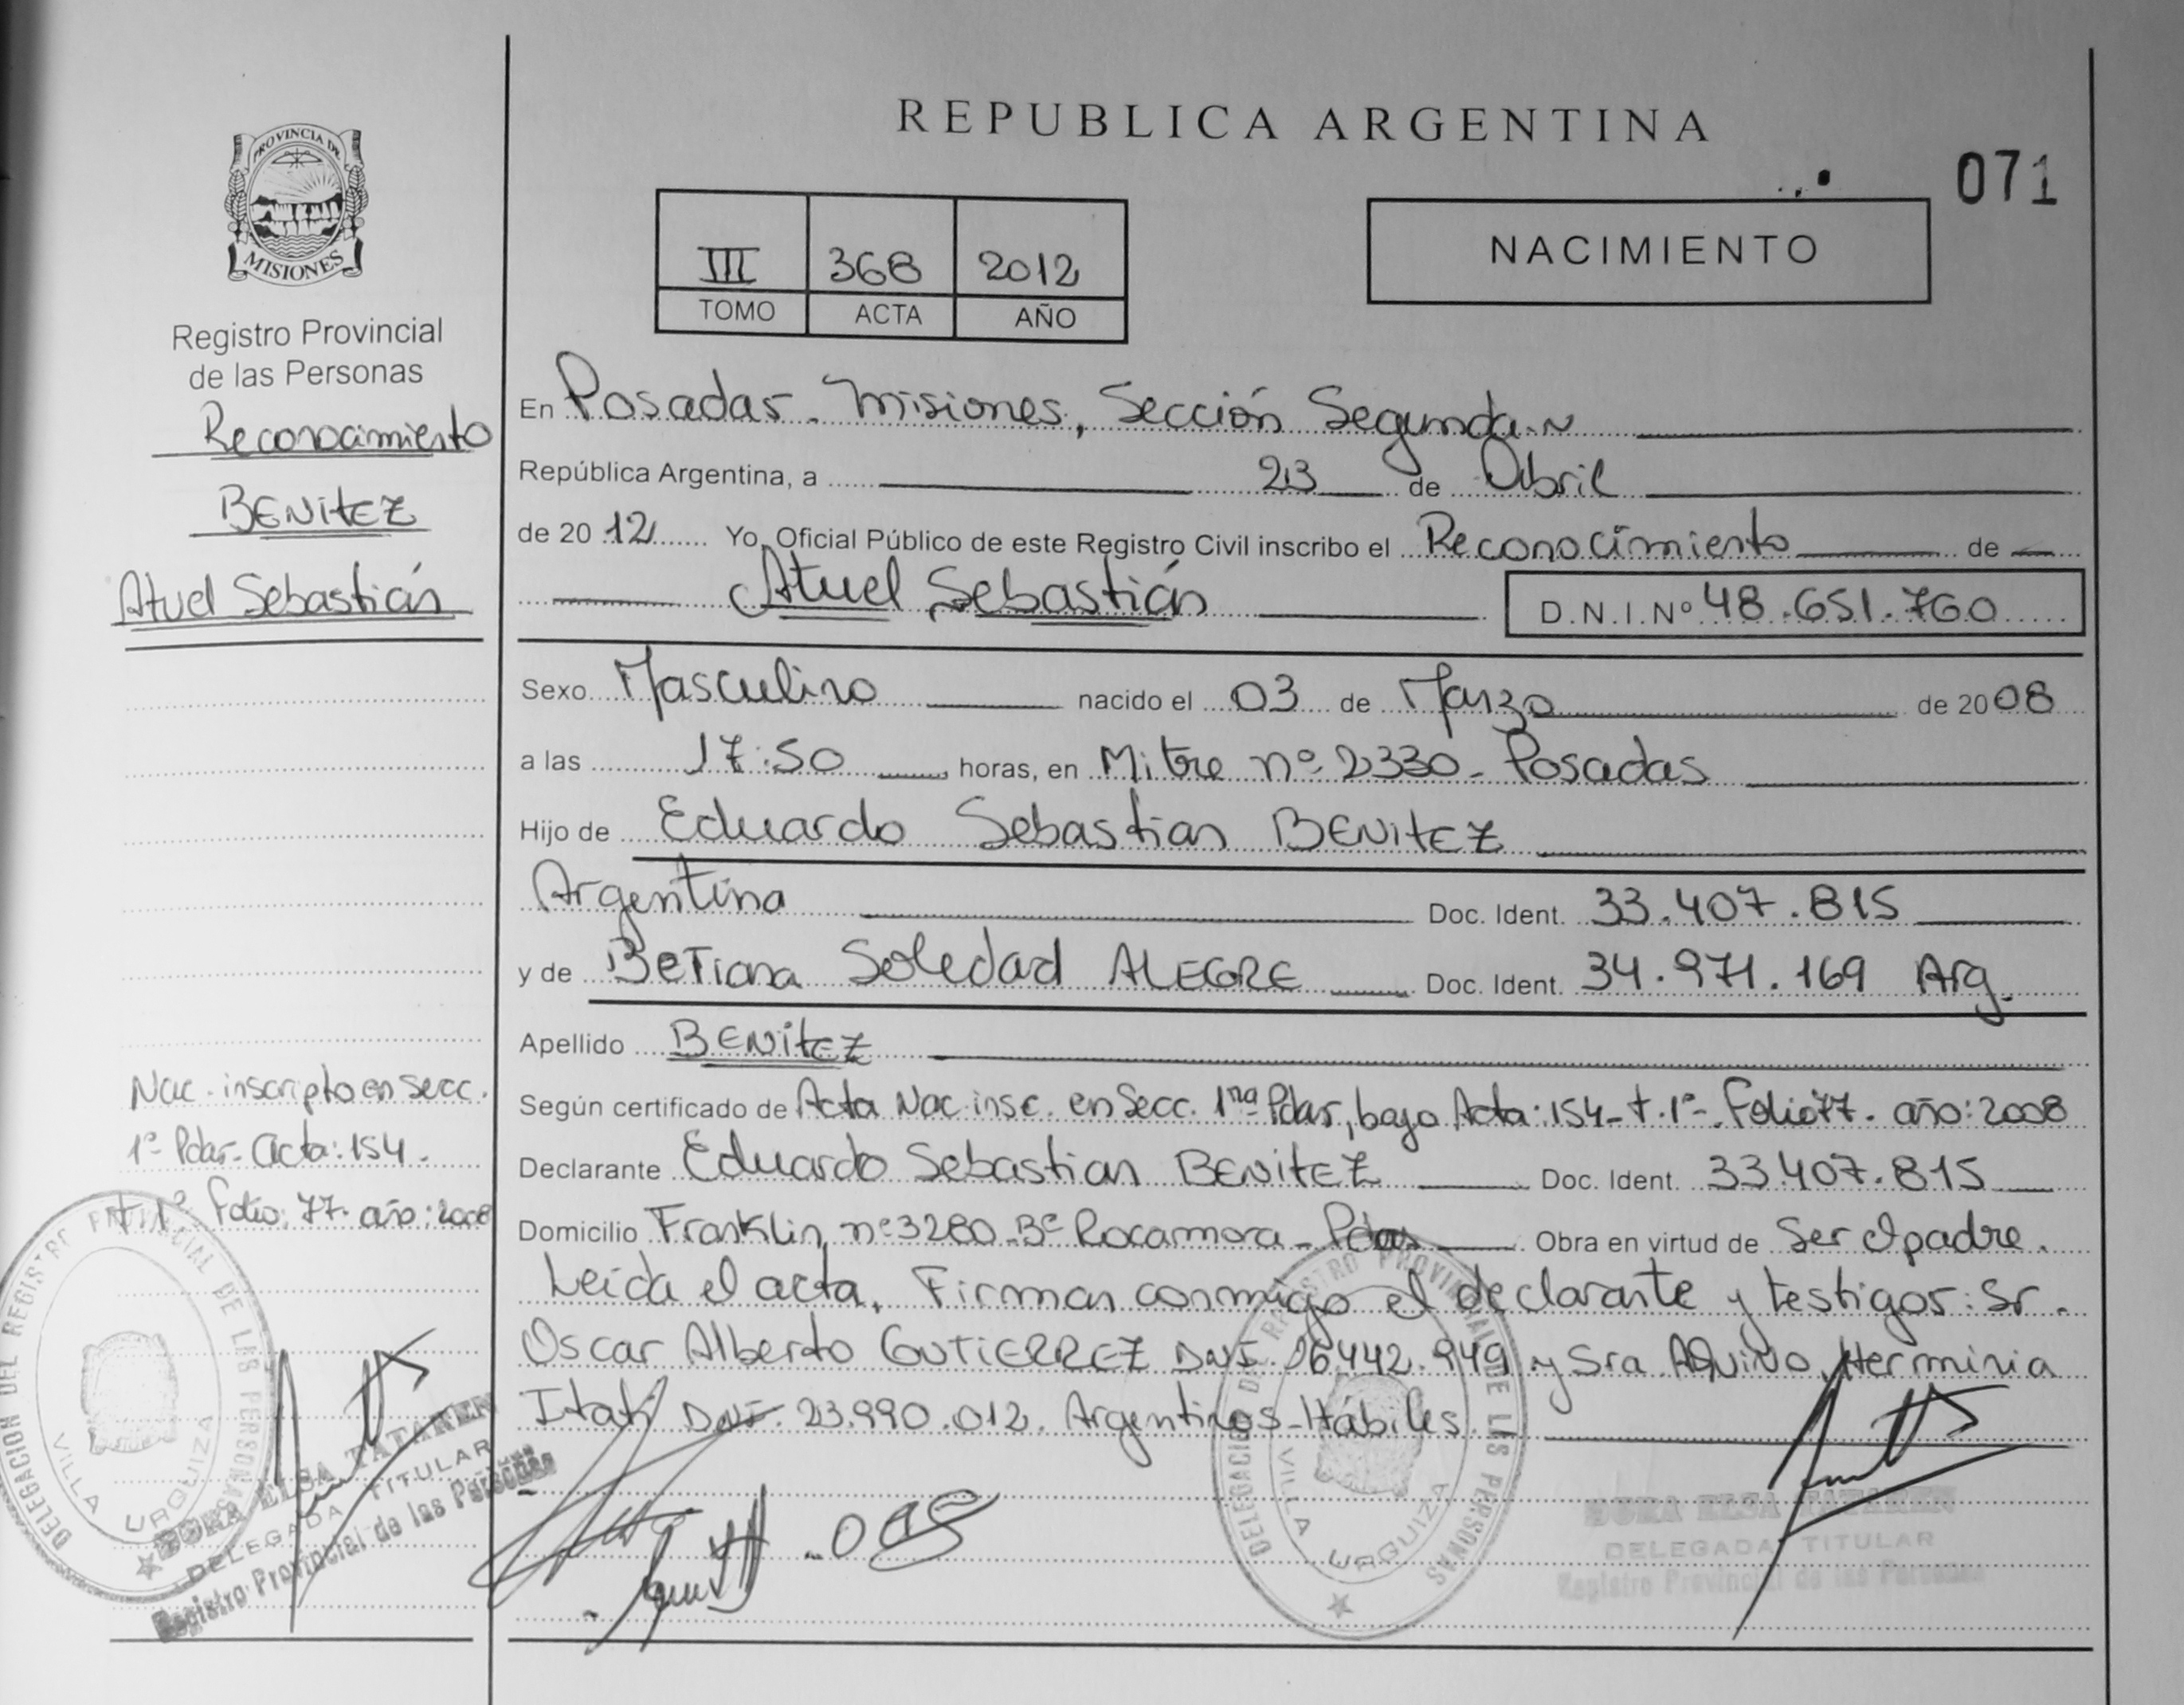 PROVINCIA DE
MISIONES
Registro Provincial
de las Personas
Reconocimiento
BENITEZ
Atuel Sebastián
Nac. inscripto en secc.
1ª Pdas- Acta: 154.
T. 1º Folio: 77. año: 2008
DELEGACION DEL REGISTRO PROVINCIAL DE LAS PERSONAS
VILLA URQUIZA
DELEGADA TITULAR
Registro Provincial de las Personas
REPUBLICA ARGENTINA
071
III 368 2012
TOMO ACTA AÑO
NACIMIENTO
En Posadas. Misiones, Sección Segunda
República Argentina, a 23 de Abril
de 2012 Yo, Oficial Público de este Registro Civil inscribo el Reconocimiento de
Atuel Sebastián D.N.I.Nº 48.651.760
Sexo Masculino nacido el 03 de Marzo de 2008
a las 17:50 horas, en Mitre nº 2330- Posadas
Hijo de Eduardo Sebastian BENITEZ
Argentina Doc. Ident. 33.407.815
y de Betiana Soledad ALEGRE Doc. Ident. 34.971.169 Arg.
Apellido BENITEZ
Según certificado de Acta Nac insc. en Secc. 1ra Pdas, bajo Acta: 154- t. 1º- Folio 77. año: 2008
Declarante Eduardo Sebastian BENITEZ Doc. Ident. 33.407.815
Domicilio Franklin nº 3280-Bº Rocamora- Pdas Obra en virtud de Ser el padre.
Leída el acta, Firman conmigo el declarante y testigos: Sr.
Oscar Alberto GUTIERREZ DNI. 26.442.949 y Sra AQuiNO, Herminia
Itatí DNI. 23.990.012. Argentinos-Hábiles
DELEGACION DEL REGISTRO PROVINCIAL DE LAS PERSONAS
VILLA URQUIZA
DELEGADA TITULAR
Registro Provincial de las Personas